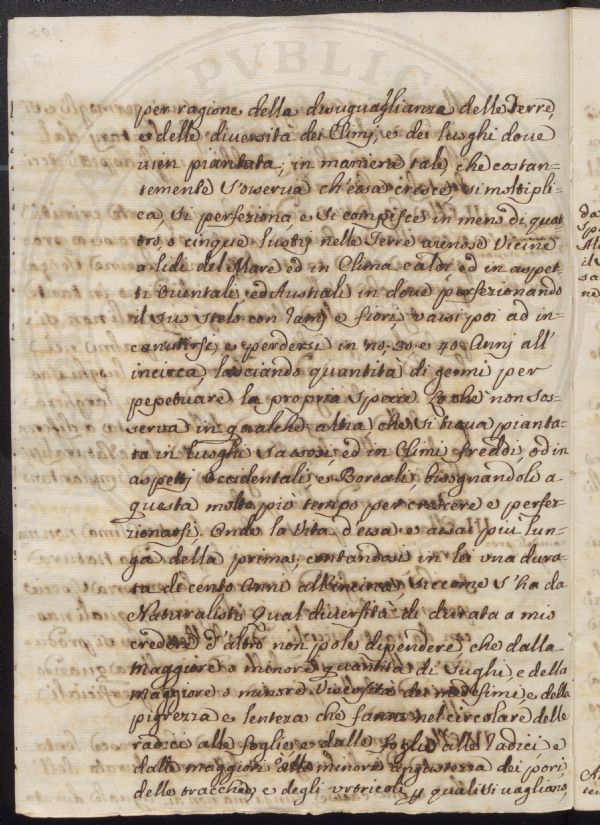 per ragione della disuguaglianza delle terre,
e delle diversità dei Climj, e dei luoghi dove
vien piantata; in maniera tale, che costan-
temente s'osserva ch'essa cresce, si moltipli-
ca, si perfeziona e si compisce in meno di quat-
tro, o cinque lustrj nelle Terre arenose Vicine
a lidi del Mare ed in Clima caldi ed in aspet-
ti Orientali, ed Australi in dove perfezionando
il suo stelo con ramj e fiori, vassi poi ad in-
canutirse, e perdersi in 20, 30 e 40 Annj all'
incirca, lasciando quantità di germi per
pepetuare la propria Specie. Lo che non s'os-
serva in qualched'altra che si trova pianta-
ta in luoghi Sassosi, ed in Climi freddi, od in
aspettj Occidentali, e Boreali, bisognandoli a
questa molto più tempo per crescere e perfez-
zionarsi. Onde la Vita d'essa e assai più lun-
ga della prima, contandosi in lei una dura-
ta di cento Anni all'incirca, siccome s'ha da
Naturalisti. Qual diversità di durata a mio
credere d'altro non pole dipendere, che dalla
maggiore o minore quantità di sughi, e della
maggiore o minore Viscosità dei medesimi e della
pigrezza e lenteza che fanno nel circolare delle
radici alle foglie e dalle foglie alle radici e
dalle maggiori o minore angustezza dei pori,
delle tracchee, e degli utricoli, qualisi vagliono
PVBLIC